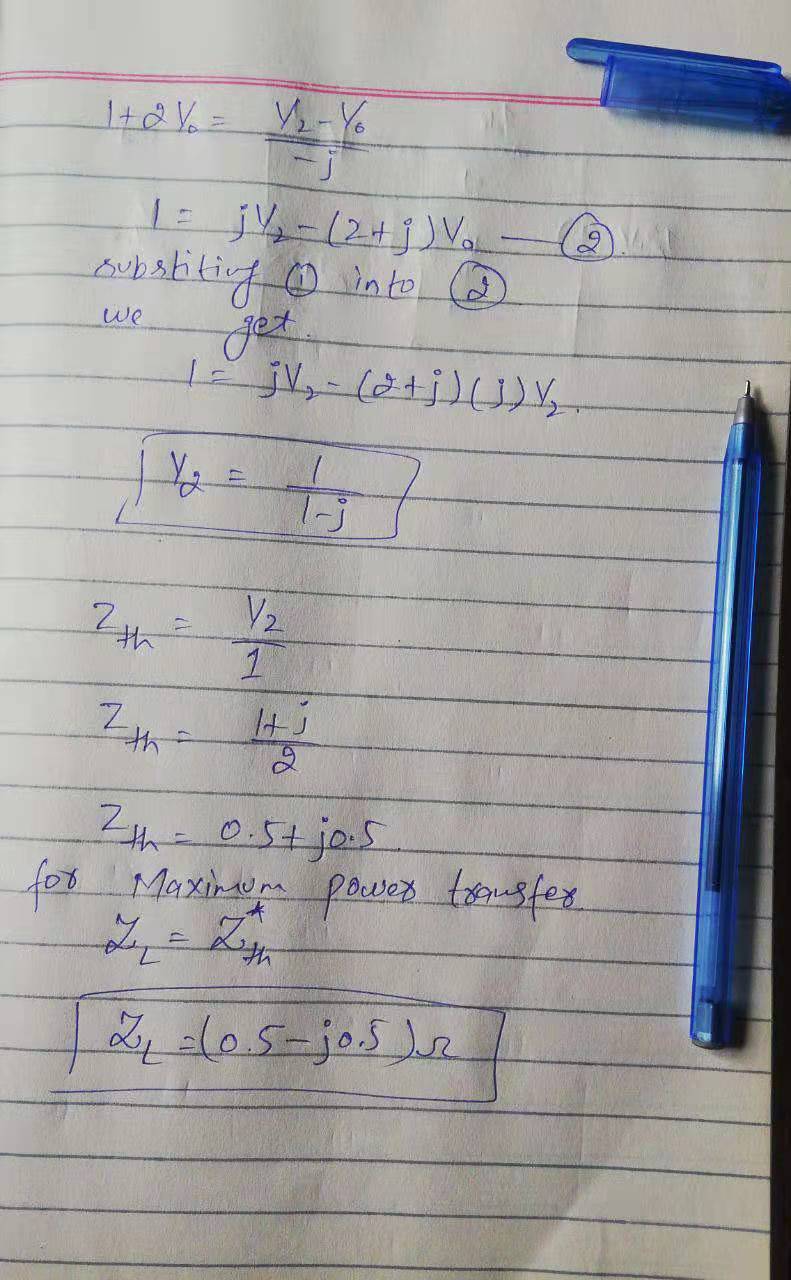 1+2V₀ = (V₂-V₀)/(-j)
1 = jV₂-(2+j)V₀ — ②.
substiting ① into ②
we get.
1 = jV₂-(2+j)(j)V₂.
V₂ = 1/(1-j)
Zth = V₂/1
Zth = (1+j)/2
Zth = 0.5+j0.5.
for Maximum power transfer
Z_L = Z*th
Z_L = (0.5-j0.5)Ω